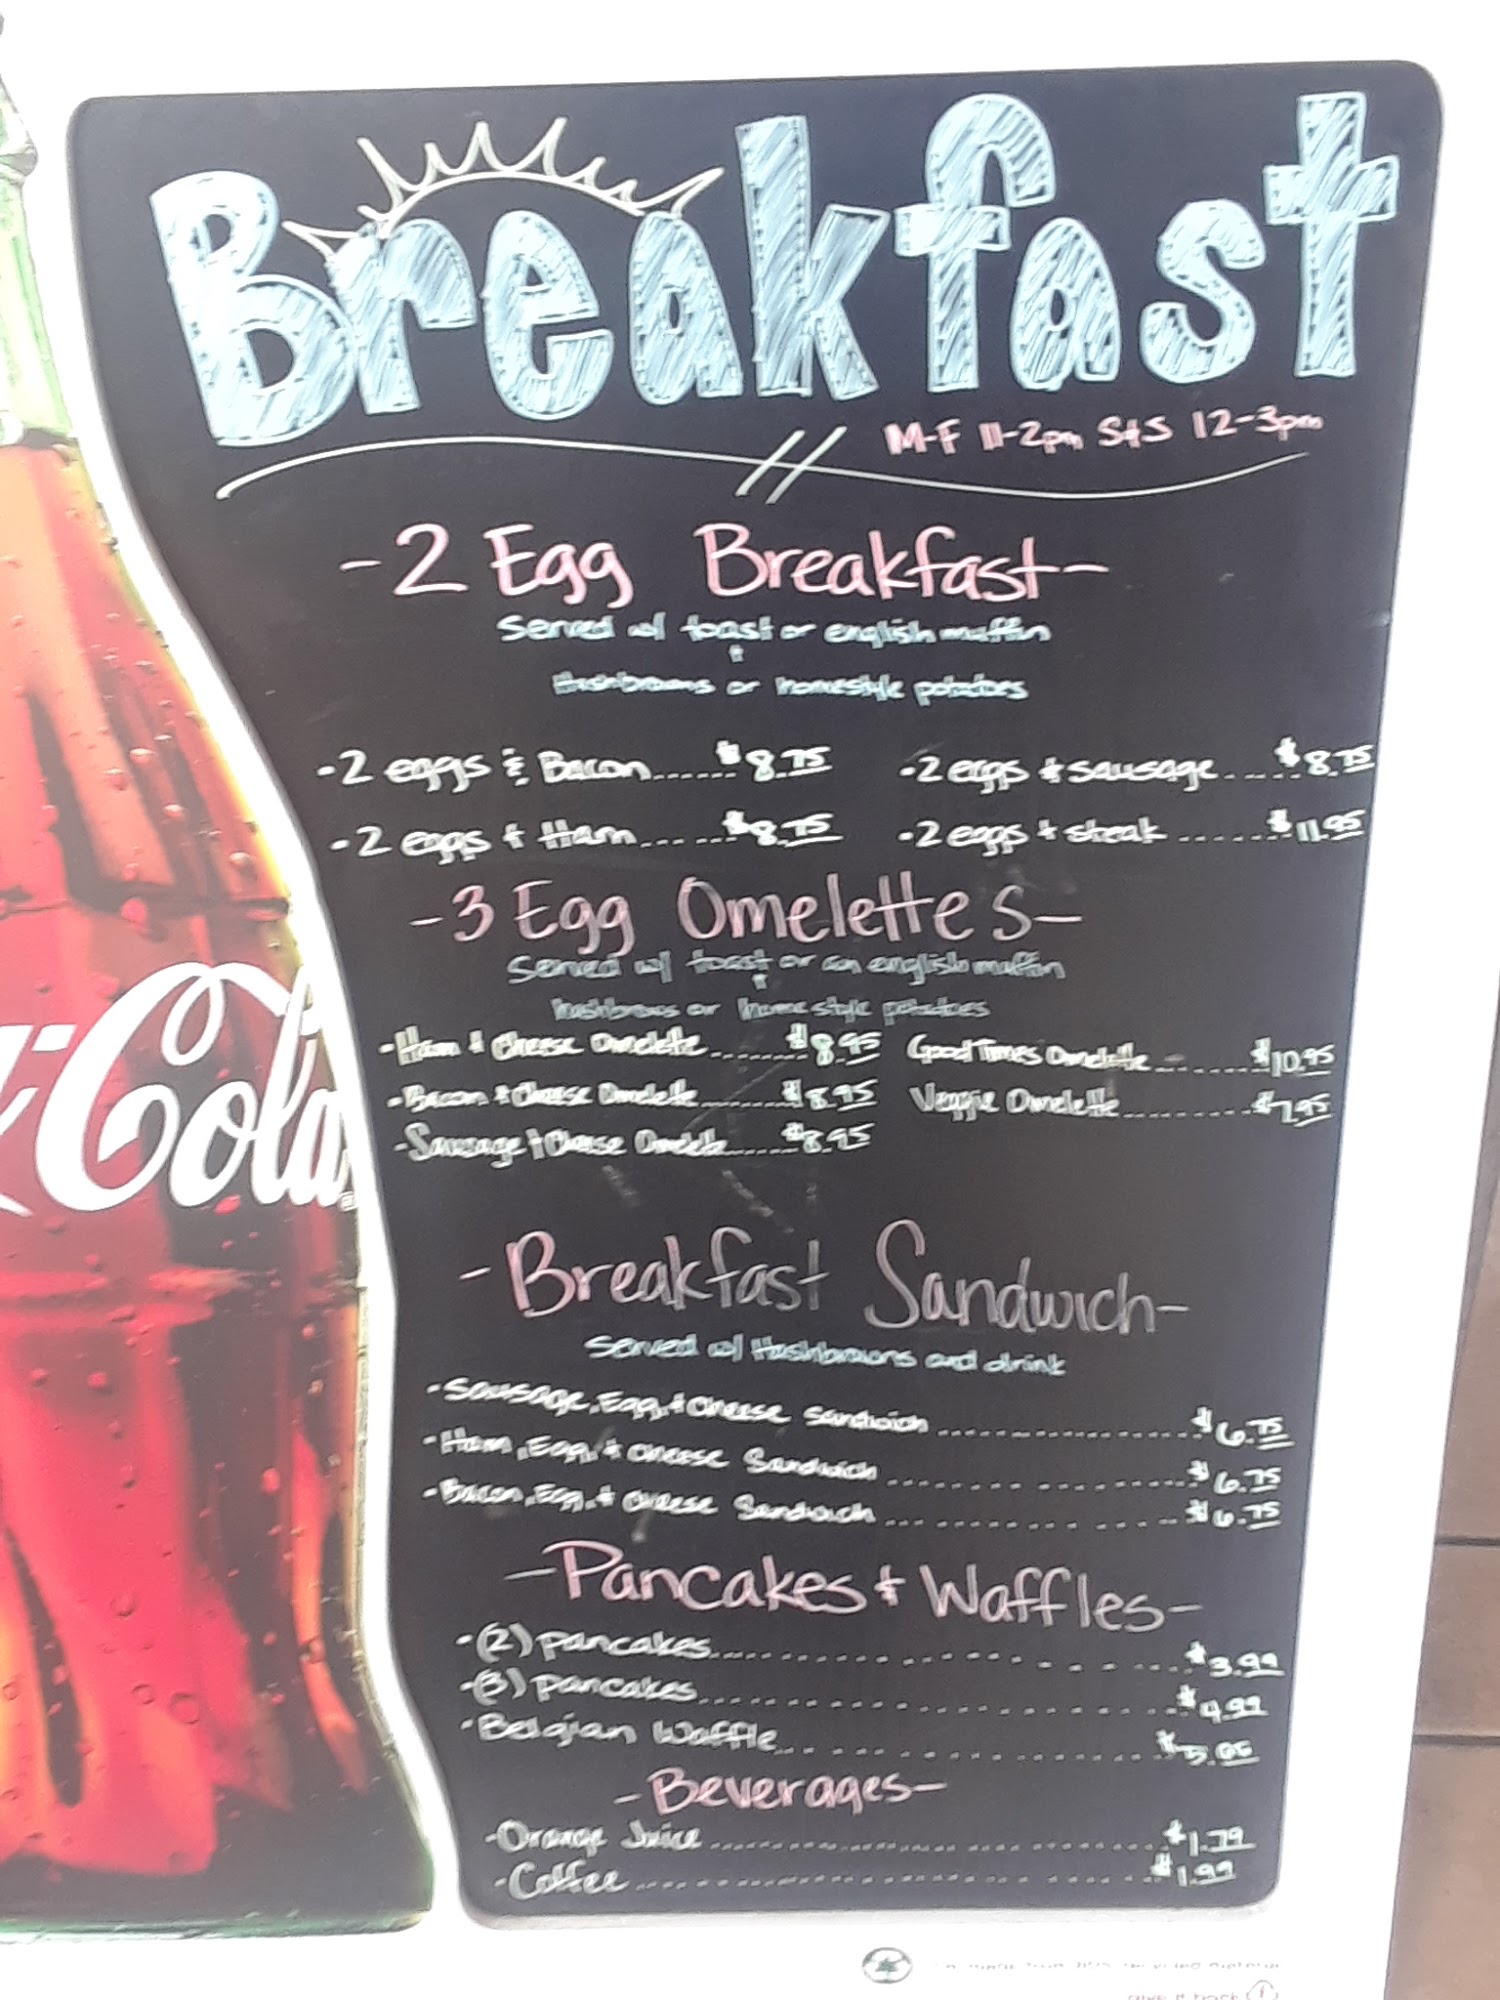 Breakfast
M-F 11-2pm S&S 12-3pm
-2 Egg Breakfast-
Served w/ toast or english muffin
+
Hashbrowns or homestyle potatoes
-2 eggs & Bacon......$8.75
-2 eggs & sausage......$8.75
-2 eggs & Ham......$8.75
-2 eggs & steak......$11.95
-3 Egg Omelettes-
Served w/ toast or an english muffin
+
hashbrowns or homestyle potatoes
-Ham & Cheese Omelette......$8.95
Good Times Omelette......$10.95
-Bacon & Cheese Omelette......$8.95
Veggie Omelette......$7.95
-Sausage & Cheese Omelette......$8.95
-Breakfast Sandwich-
Served w/ Hashbrowns and drink
-Sausage, Egg, & Cheese Sandwich......$6.75
-Ham, Egg, & Cheese Sandwich......$6.75
-Bacon, Egg, & Cheese Sandwich......$6.75
-Pancakes & Waffles-
-(2) pancakes......$3.99
-(3) pancakes......$4.99
-Belgian Waffle......
-Beverages-
-Orange Juice......$1.79
-Coffee......$1.99
Cola